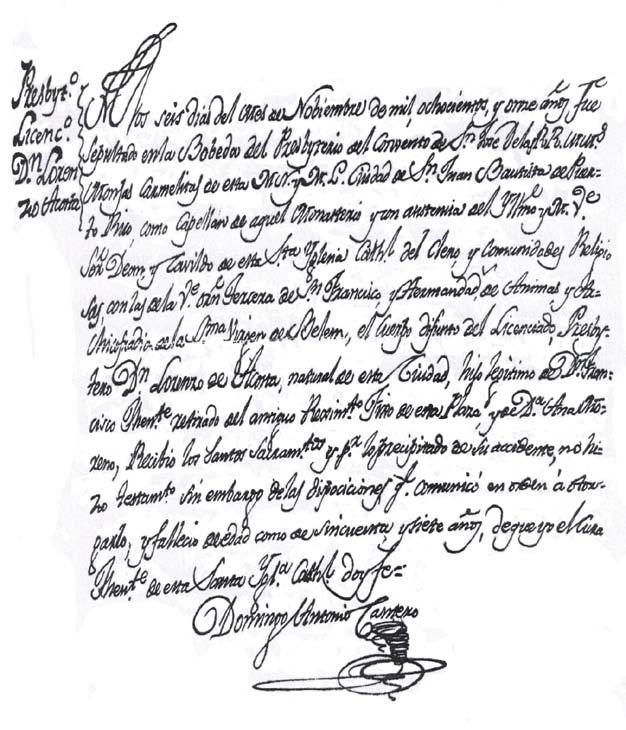 Presbyt.o
Licenc.o
D.n Loren
zo Acosta
A los seis dias del mes de Nobiembre de mil, ochocientos, y onse años, fue
sepultado en la Bobeda del Presbyterio del Convento de S.n José de las R.R.
Monjas Carmelitas de esta M.N. y M.L. Ciudad de S.n Juan Bautista de Puer-
to Rico como Capellan de aquel Monasterio y con asistencia del Yllmo y M. V.e
Sōr Dean, y Cavildo de esta S.ta Yglesia Cath.l del Clero, y Comunidades Religio
sas con las de la V.e orn Tercera de S.n Francisco, y Hermandad.s de Animas, y Ar-
chicofradia de la Virgen de Belem, el Cuerpo difunto del Licenciado, Presby-
tero D.n Lorenzo de Acosta, natural de esta Ciudad, hijo legitimo de D.n Fran-
cisco Then.te retirado del antiguo Reximto Fixo de esta Plaza, y de D.a Ana Mo-
reno, Recibio los Santos Sacram.tos y p.r lo precipitado de su accidente, no hi-
zo testam.to sin embargo de las disposiciones q.e comunicó en orden á otor-
garlo, y fallecio de edad como de sincuenta, y siete años, de que yo el Cura
Then.te de esta Santa Ygl.a Cath.l doy fe=
Domingo Antonio